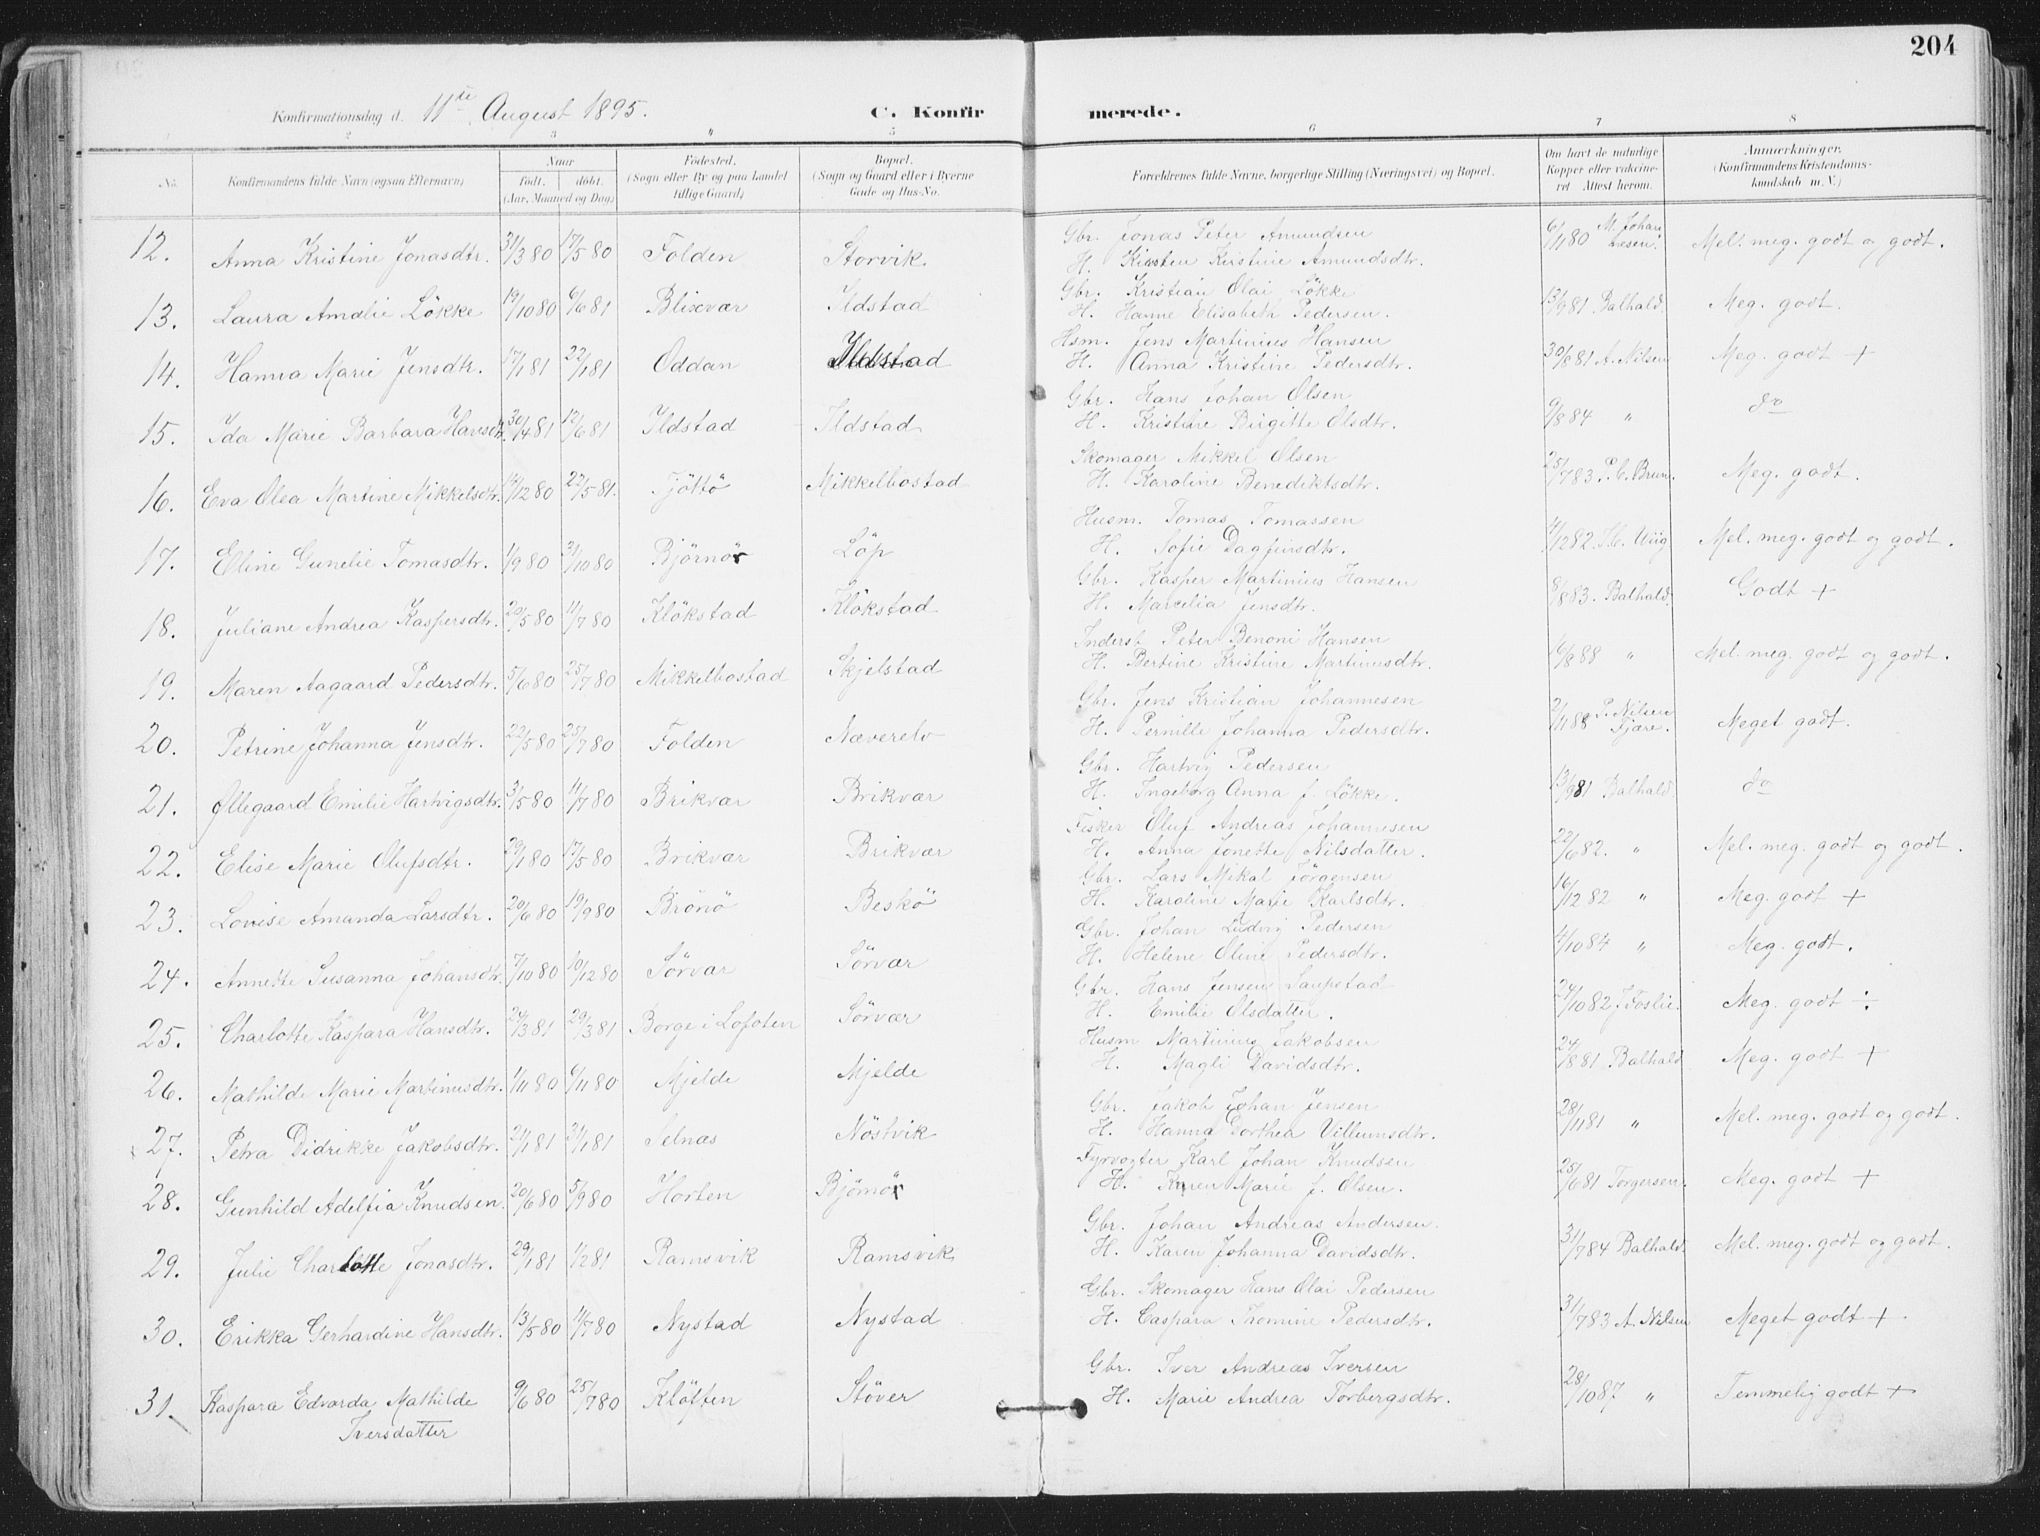 204
Konfirmationsdag d. 11te August 1895. C. Konfirmerede.
1 2 3 4 5 6 7 8
No. Konfirmandens fulde Navn (ogsaa Efternavn) Naar født. døbt. (Aar, Maaned og Dag) Fødested. (Sogn eller By og paa Landet tillige Gaard) Bopæl. (Sogn og Gaard eller i Byerne Gade og Hus-No. Forældrenes fulde Navne, borgerlige Stilling (Næringsvei) og Bopæl. Om havt de naturlige Kopper eller vaccineret Attest herom. Anmærkninger. (Konfirmandens Kristendomskundskab m. V.)
12. Anna Kristine Jonasdtr. 31/3 80 17/5 80 Folden Storvik. Gbr. Jonas Peter Amundsen 6/11 80 M. Johan Mel. meg. godt og godt.
H. Kirsten Kristine Amundsdtr.
13. Laura Amalie Løkke 19/10 80 6/6 81 Blixvær Ildstad Gbr. Kristian Olai Løkke 13/9 81 Balhald. Meg. godt.
H. Hanne Elisabeth Pedersen.
14. Hanna Marie Jensdtr. 17/1 81 22/1 81 Oddan Ildstad Hsm. Jens Martinius Hansen 30/8 81 A. Nilsen Meg. godt +
H. Anna Kristine Pedersdtr.
15. Ida Marie Barbara Hansdtr. 30/4 81 12/6 81 Ildstad Ildstad Gbr. Hans Johan Olsen 9/8 84 " do
H. Kristine Birgitte Olsdtr.
16. Eva Olea Martine Mikkelsdtr. 14/12 80 22/5 81. Tjøttø Mikkelbostad Skomager Mikkel Olsen 25/7 83 P. C. Brun. Meg. godt.
H. Karoline Benediktsdtr.
17. Eline Gunelie Tomasdtr. 1/9 80 31/10 80 Bjørnør Løp Husm. Tomas Tomassen 4/12 82 Wiig Mel. meg. godt og godt.
H. Sofie Dagfinsdtr.
18. Juliane Andrea Kaspersdtr. 20/5 80 11/7 80 Kløkstad Kløkstad Gbr. Kasper Martinius Hansen 8/8 83. Balhald. Godt +
H. Marcelia Jensdtr.
19. Maren Aagaard Pedersdtr. 5/6 80 25/7 80 Mikkelbostad Skjelstad Inderst Peter Benoni Hansen 16/8 88 " Mel. meg. godt og godt.
H. Bertine Kristine Martinusdtr.
20. Petrine Johanna Jensdtr. 22/5 80 25/7 80 Folden Næverelv Gbr. Jens Kristian Johannesen 2/11 88 P. Nilsen Fjære. Meget godt.
H. Pernille Johanna Pedersdtr.
21. Øllegaard Emilie Hartvigsdtr. 3/5 80 11/7 80 Brikvær Brikvær Gbr. Hartvig Pedersen 13/9 81 Balhald do
H. Ingeborg Anna f. Løkke.
22. Elise Marie Olufsdtr. 29/1 80 17/5 80 Brikvær Brikvær Fisker Oluf Andreas Johannesen 22/6 82. " Mel. meg. godt og godt.
H. Anna Jonette Nilsdatter.
23. Lovise Amanda Larsdtr. 20/6 80 19/9 80 Brønø Beskø Gbr. Lars Mikal Jørgensen 16/12 82 " Meg. godt +
H. Karoline Marie Karlsdtr.
24. Annette Susanna Johansdtr. 7/10 80 10/12 80 Sørvær Sørvær Gbr. Johan Ludvig Pedersen 4/10 84 " Meg. godt.
H. Helene Oline Pedersdtr.
25. Charlotte Kaspara Hansdtr. 24/3 81 29/3 81 Borge i Lofoten Sørvær Gbr. Hans Jensen Laupstad 27/10 82 J. Foslie. Meg. godt ÷
H. Emilie Olsdatter.
26. Mathilde Marie Martinusdtr. 1/11 80 6/11 80 Mjelde Mjelde Husm Martinius Jakobsen 24/8 81 Balhald Meg. godt +
H. Magli Davidsdtr.
27. Petra Didrikke Jakobsdtr. 21/1 81 31/1 81 Selnæs Nøstvik Gbr. Jakob Johan Jensen 28/11 81 " Mel. meg. godt og godt.
H. Hanna Dorthea Villumsdtr.
28. Gunhild Adelfia Knudsen. 20/6 80 5/9 80 Horten Bjørnør Fyrvogter Karl Johan Knudsen 25/6 81 Torgersen. Meg. godt +
H. Karen Marie f. Olsen.
29. Julie Charlotte Jonasdtr. 29/1 81 1/2 81 Ramsvik Ramsvik Gbr. Johan Andreas Andersen. 31/7 84 Balhald. Mel. meg. godt og godt.
H. Karen Johanna Davidsdtr.
30. Erikka Gerhardine Hansdtr. 13/5 80 11/7 80 Nystad Nystad Gbr. Skomager Hans Olai Pedersen 31/7 83 A. Nilsen Meget godt +
H. Caspara Tromine Pedersdtr.
31. Kaspara Edvarda Mathilde Iversdatter 9/6 80 25/7 80 Kløften Støver Gbr. Iver Andreas Iversen 28/10 87 " Temmelig godt +
H. Marie Andrea Torbergsdtr.